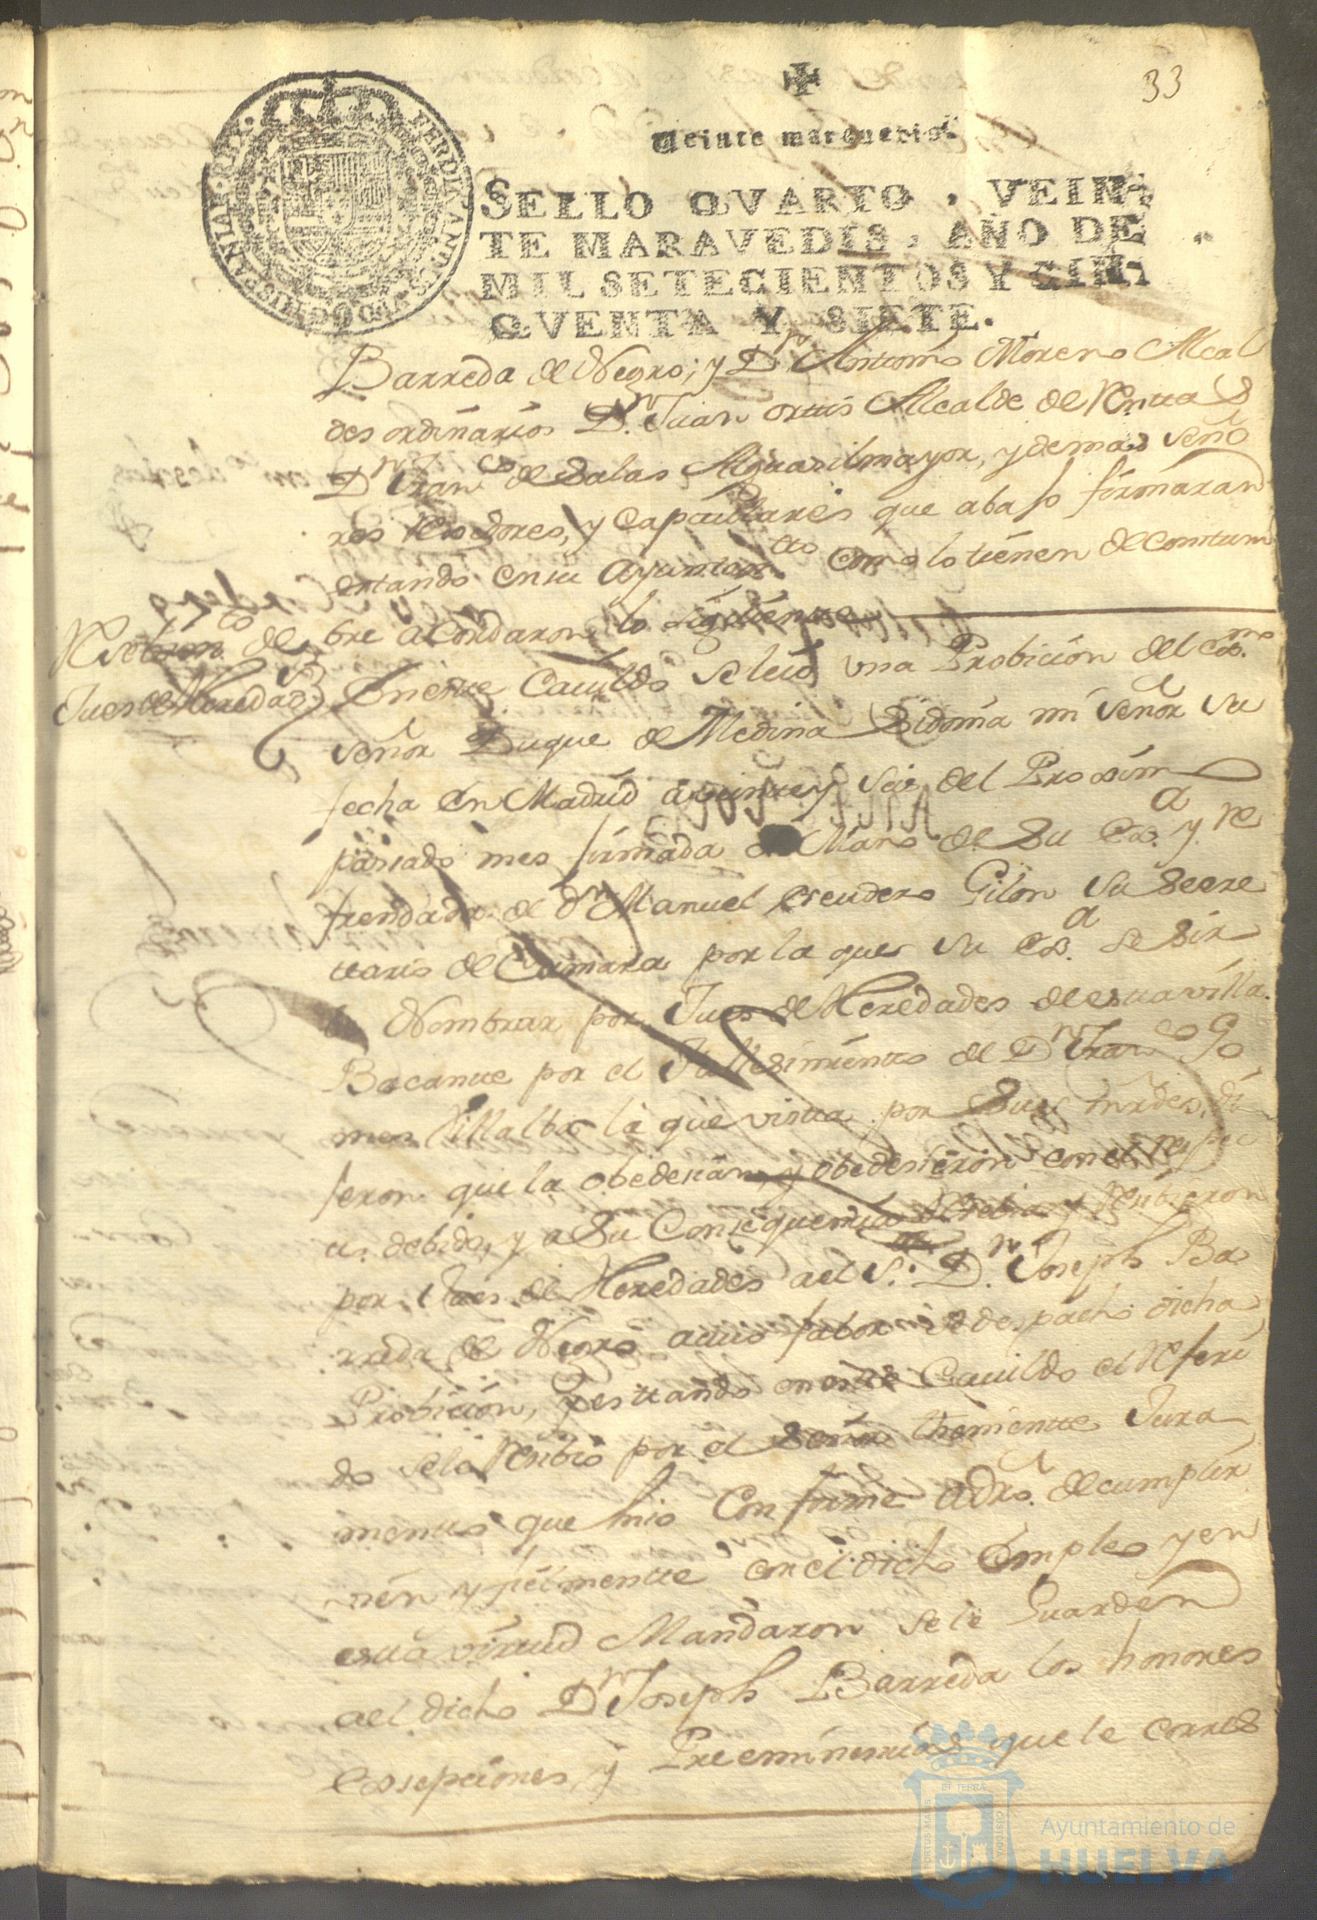 33
Veinte maravedis.
SELLO QVARTO, VEIN-
TE MARAVEDIS, AÑO DE
MIL SETECIENTOS Y CIN-
QVENTA Y SIETE.
FERDINANDUS VI D G HISPANIAR REX
Barreda de Negro; y Dn Antonio Moreno Alcal
des ordinarios Dn Juan ortis Alcalde de
Dn Franco de Salas Alguasilmayor, y demas seño
res Rexidores, y Capitulares que abajo firmaran
estando en su Ayuntamto como lo tienen de costum
bre acordaron lo siguiente
Resebimto de
Jues de Heredads
En este Cavildo se leio una Probicion del Exmo
señor Duque de Medina Sidonia mi señor su
fecha en Madrid a veinte y seis del Proximo
pasado mes firmada de Mano de Su Exa y re
frendada de Dn Manuel escudero Gilon su Secre
tario de Camara por la que su Exa se sir
be Nombrar por Jues de Heredades de esta villa
Bacante por el fallesimiento de Dn Franco Jo
men Villalba la que vista por Sus mrdes. di
jeron que la obedecian, y obedesieron con el respec
to debido, y a Su Consequencia y Resibieron
por Jues de Heredades a el Sr. Dn Joseph Ba
rreda de Negro a cuio fabor se despacho dicha
Probicion, y estando en este Cavildo el referi
do se le Resibio por el Señor theniente Jura
mento que hiso Conforme a dro. de cumplir
vien y fielmente con el dicho Empleo y en
esta virtud Mandaron se le Guarden
a el dicho Dn Joseph Barreda los honores
Exsepciones, y Preeminencias que le corres
Ayuntamiento de
HUELVA